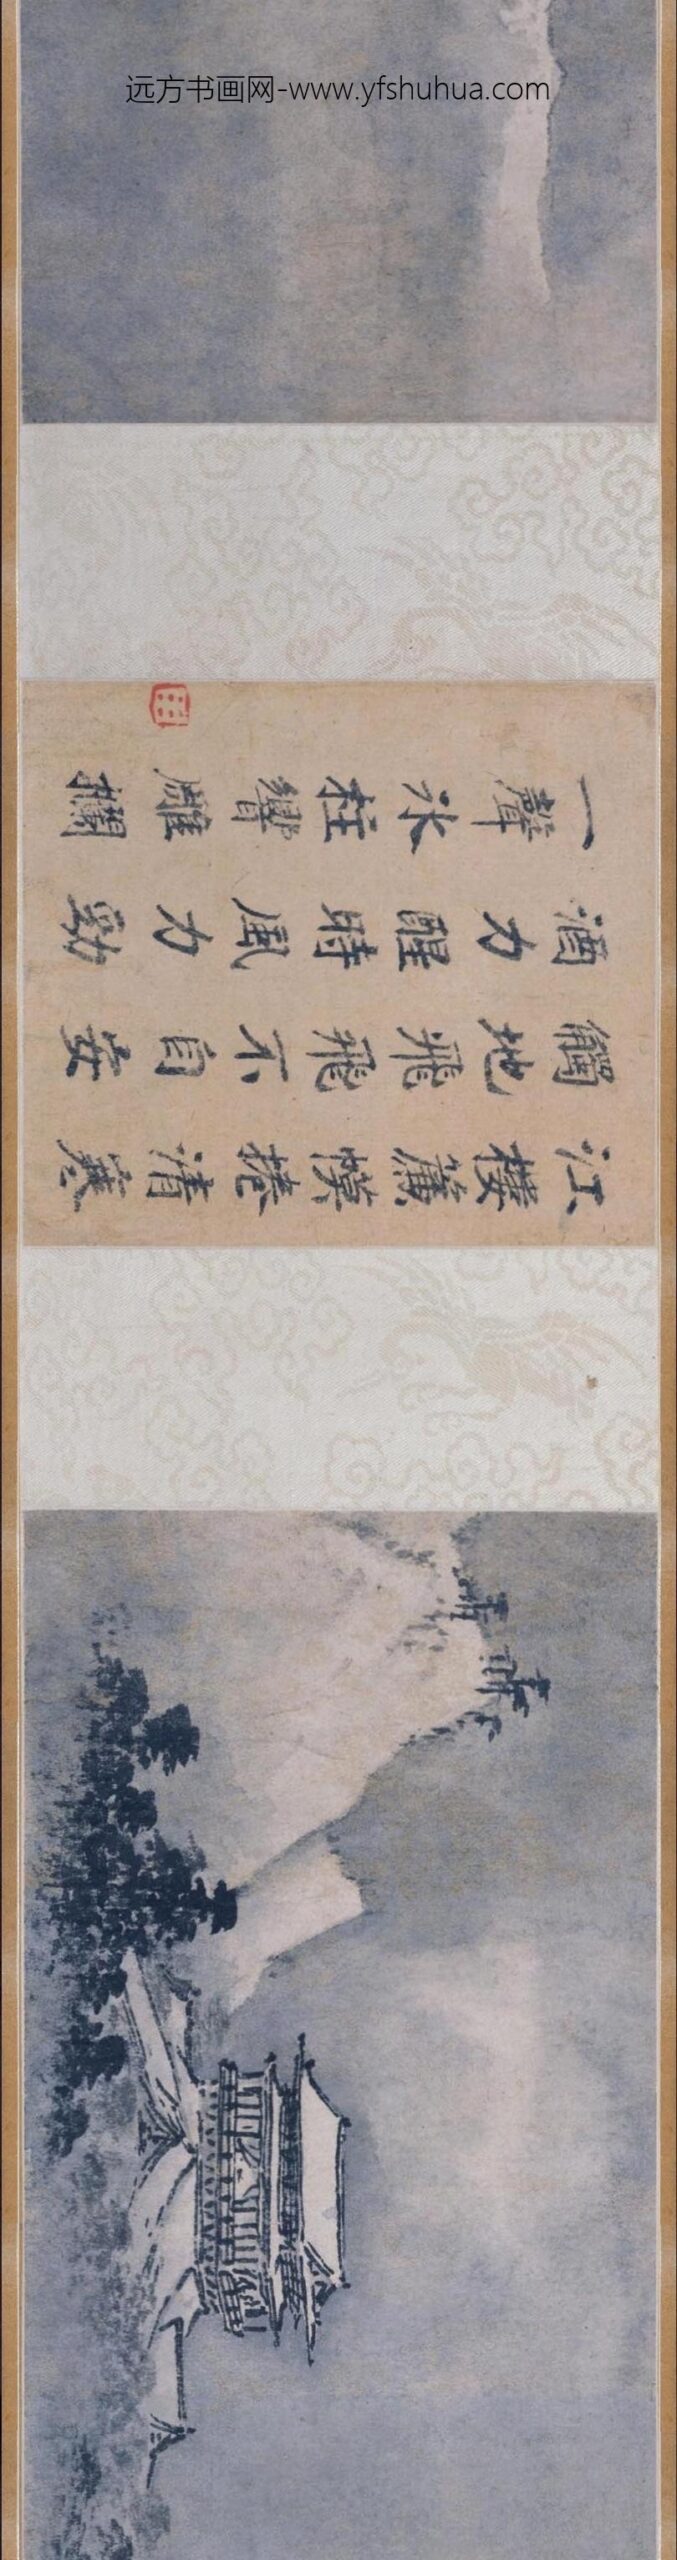 远方书画网-www.yfshuhua.com
江樓簾幙捲清寒
觸地飛飛不自安
酒力醒時風力勁
一聲冰柱響雕欄